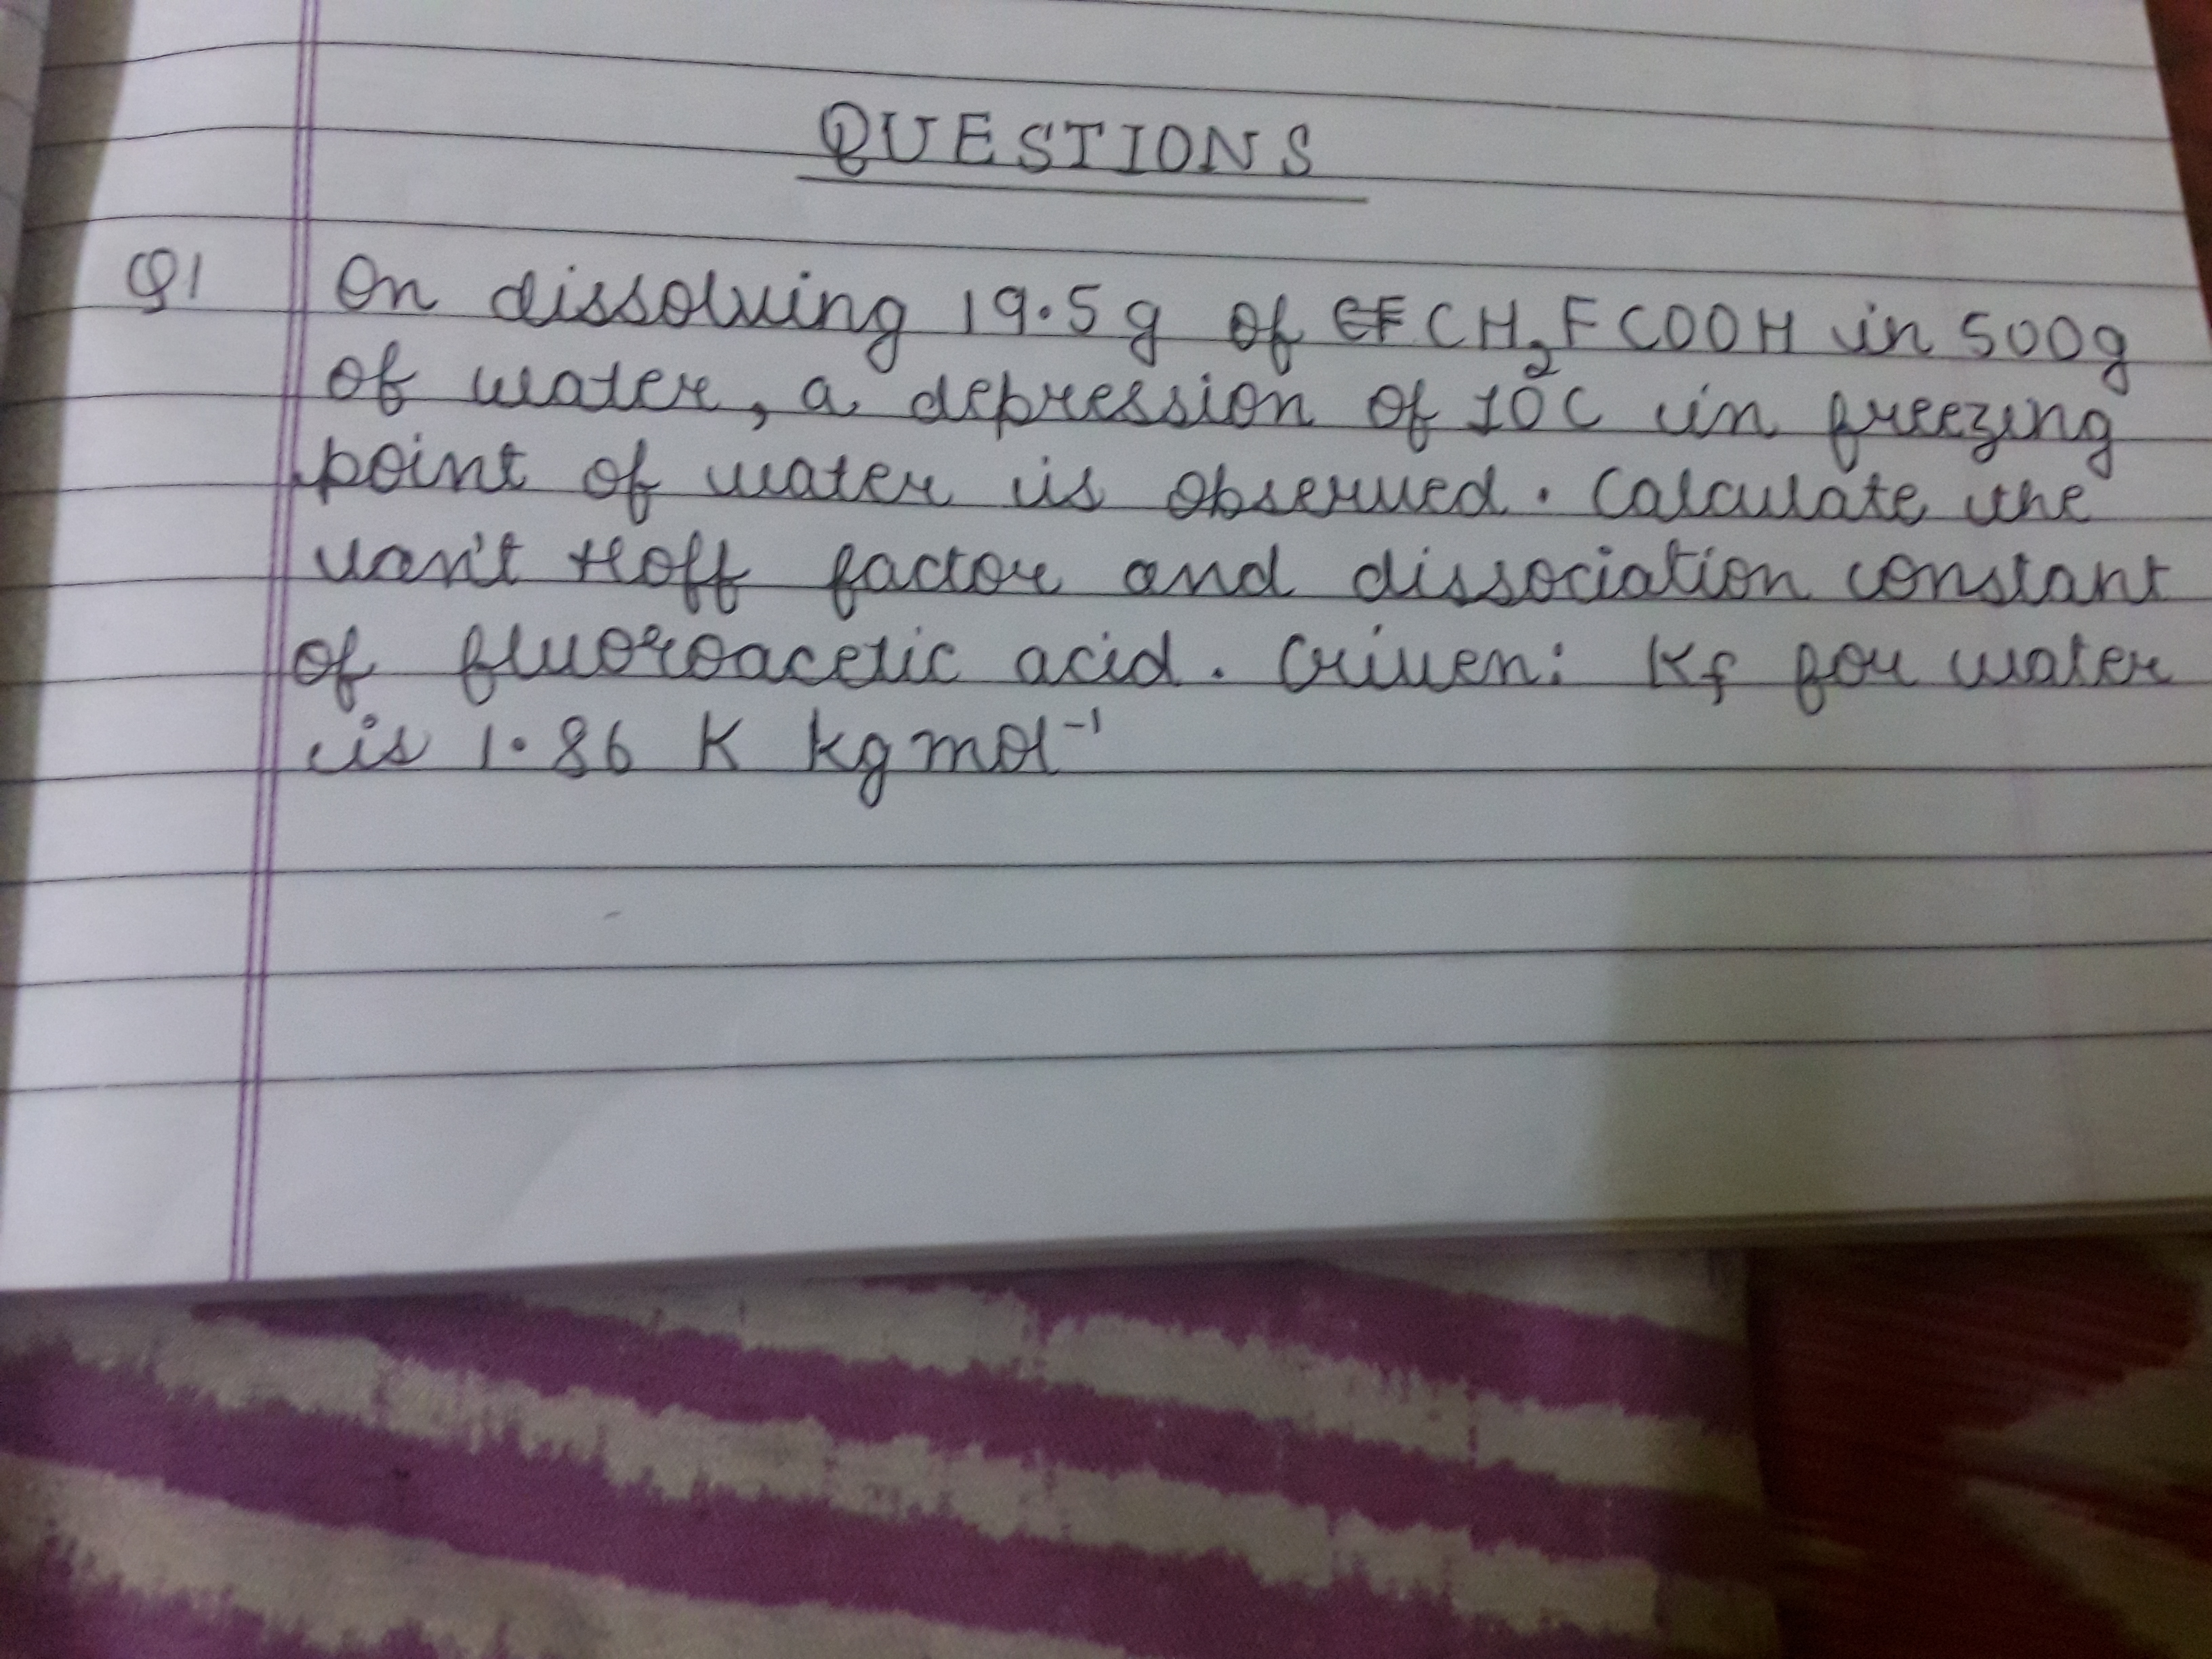 QUESTIONS
Q1 On dissolving 19.5g of CH₂FCOOH in 500g
of water, a depression of 10°C in freezing
point of water is observed. Calculate the
van't Hoff factor and dissociation constant
of fluoroacetic acid. Given: Kf for water
is 1.86 K kg mol⁻¹